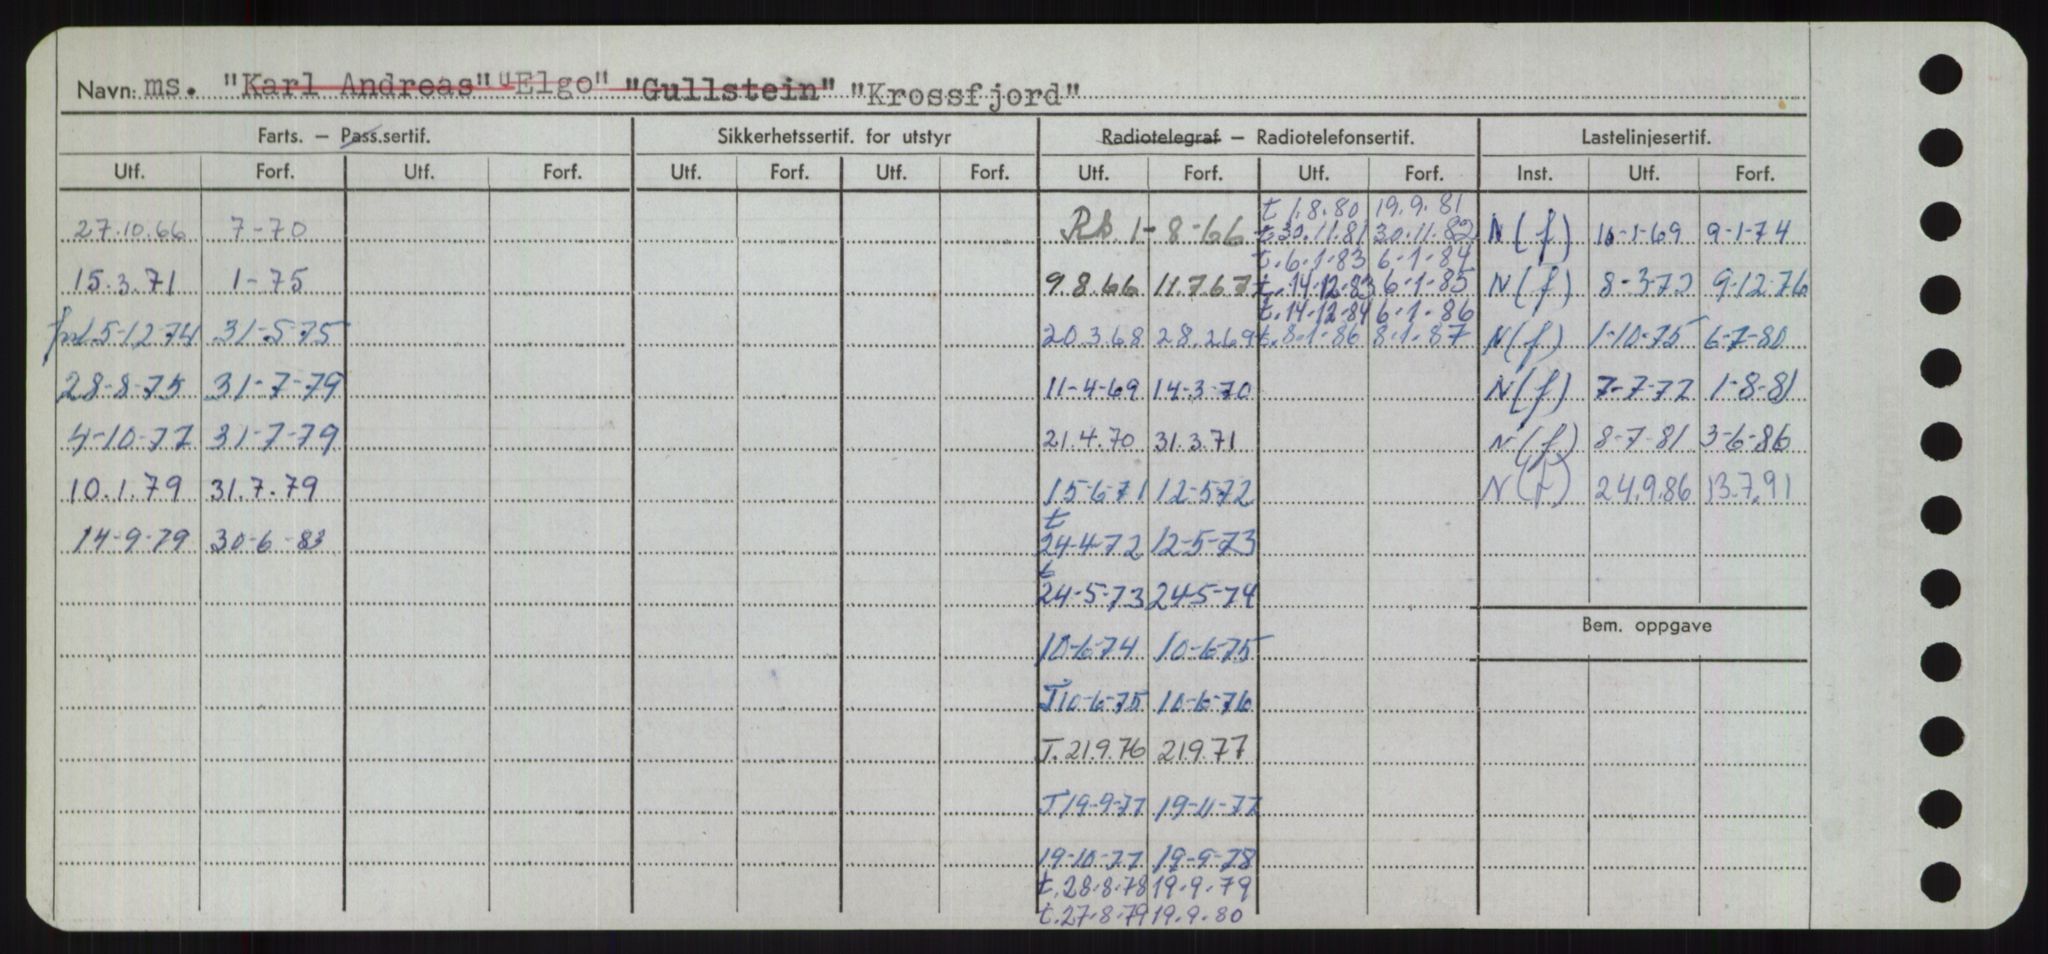 Navn: ms. "Karl Andreas" "Elgo" "Gullstein" "Krossfjord"
Farts. — Pass.sertif. Sikkerhetssertif. for utstyr Radiotelegraf — Radiotelefonsertif. Lastelinjesertif.
Utf. Forf. Utf. Forf. Utf. Forf. Utf. Forf. Utf. Forf. Utf. Forf. Inst. Utf. Forf.
t 1.8.80 19.9.81
27.10.66 7-70 1-8-66 t.30.11.81 30.11.82 N(f) 9-1-74
t.6.1.83 6-1-84
15.3.71 1-75 9.8.66 11.7.67 t.14.12.83 6-1-85 N(f) 8-3-72 9-12-76
t.14.12.84 6.1.86
5-12-74 31-5-75 20.3.68 28.2.69 t.8.1.86 8.1.87 N(f) 1-10-75 6-7-80
28-8-75 31-7-79 11-4-69 14-3-70 N(f) 7-7-77 1-8-81
4-10-77 31-7-79 21.4.70 31.3.71 N(f) 8-7-81 3-6-86
10.1.79 31.7.79 15-6-71 12-5-72 N(f) 24.9.86 13.7.91
t
14-9-79 30-6-83 24-4-72 12-5-73
t
24-5-73 24-5-74
Bem. oppgave
10-6-74 10-6-75
T10-6-75 10-6-76
T.21.9.76 21.9.77
T19-9-77 19-11-77
19-10-77 19-9-78
t.28.8.78 19.9.79
t.27.8.79 19.9.80